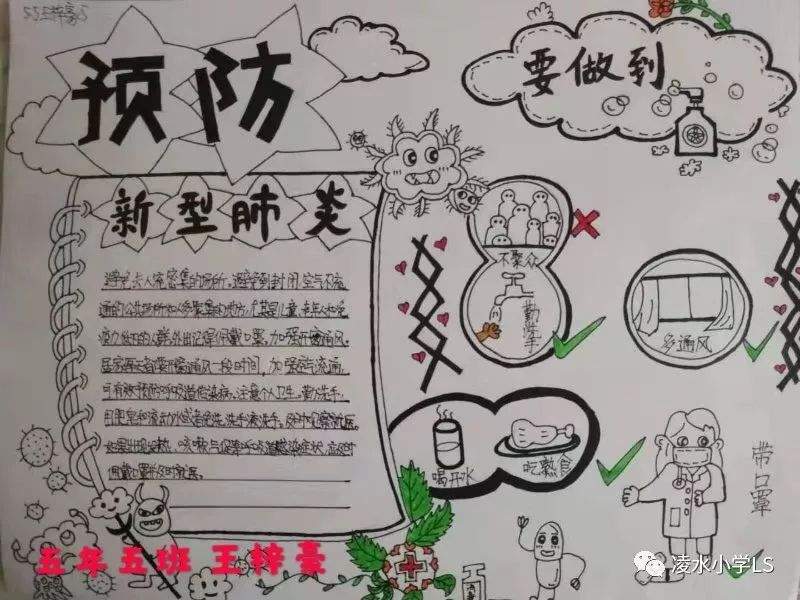 预防
要做到
新型肺炎
避免去人流密集的场所。避免到封闭、空气不流
通的公共场所和人多聚集的地方,尤其是儿童、老年人和免
疫力低下的人群,外出记得佩戴口罩,加强开窗通风。
居家每天都要开窗通风一段时间,加强空气流通,
可有效预防呼吸道传染病。注意个人卫生。勤洗手,
用肥皂和流动水或者免洗洗手液洗手。及时观察就医。
如果出现发热、咳嗽等呼吸道感染症状,应及时
佩戴口罩并及时就医。
不聚众
勤洗手
多通风
喝开水
吃熟食
带口罩
五年五班 王梓豪
凌水小学LS